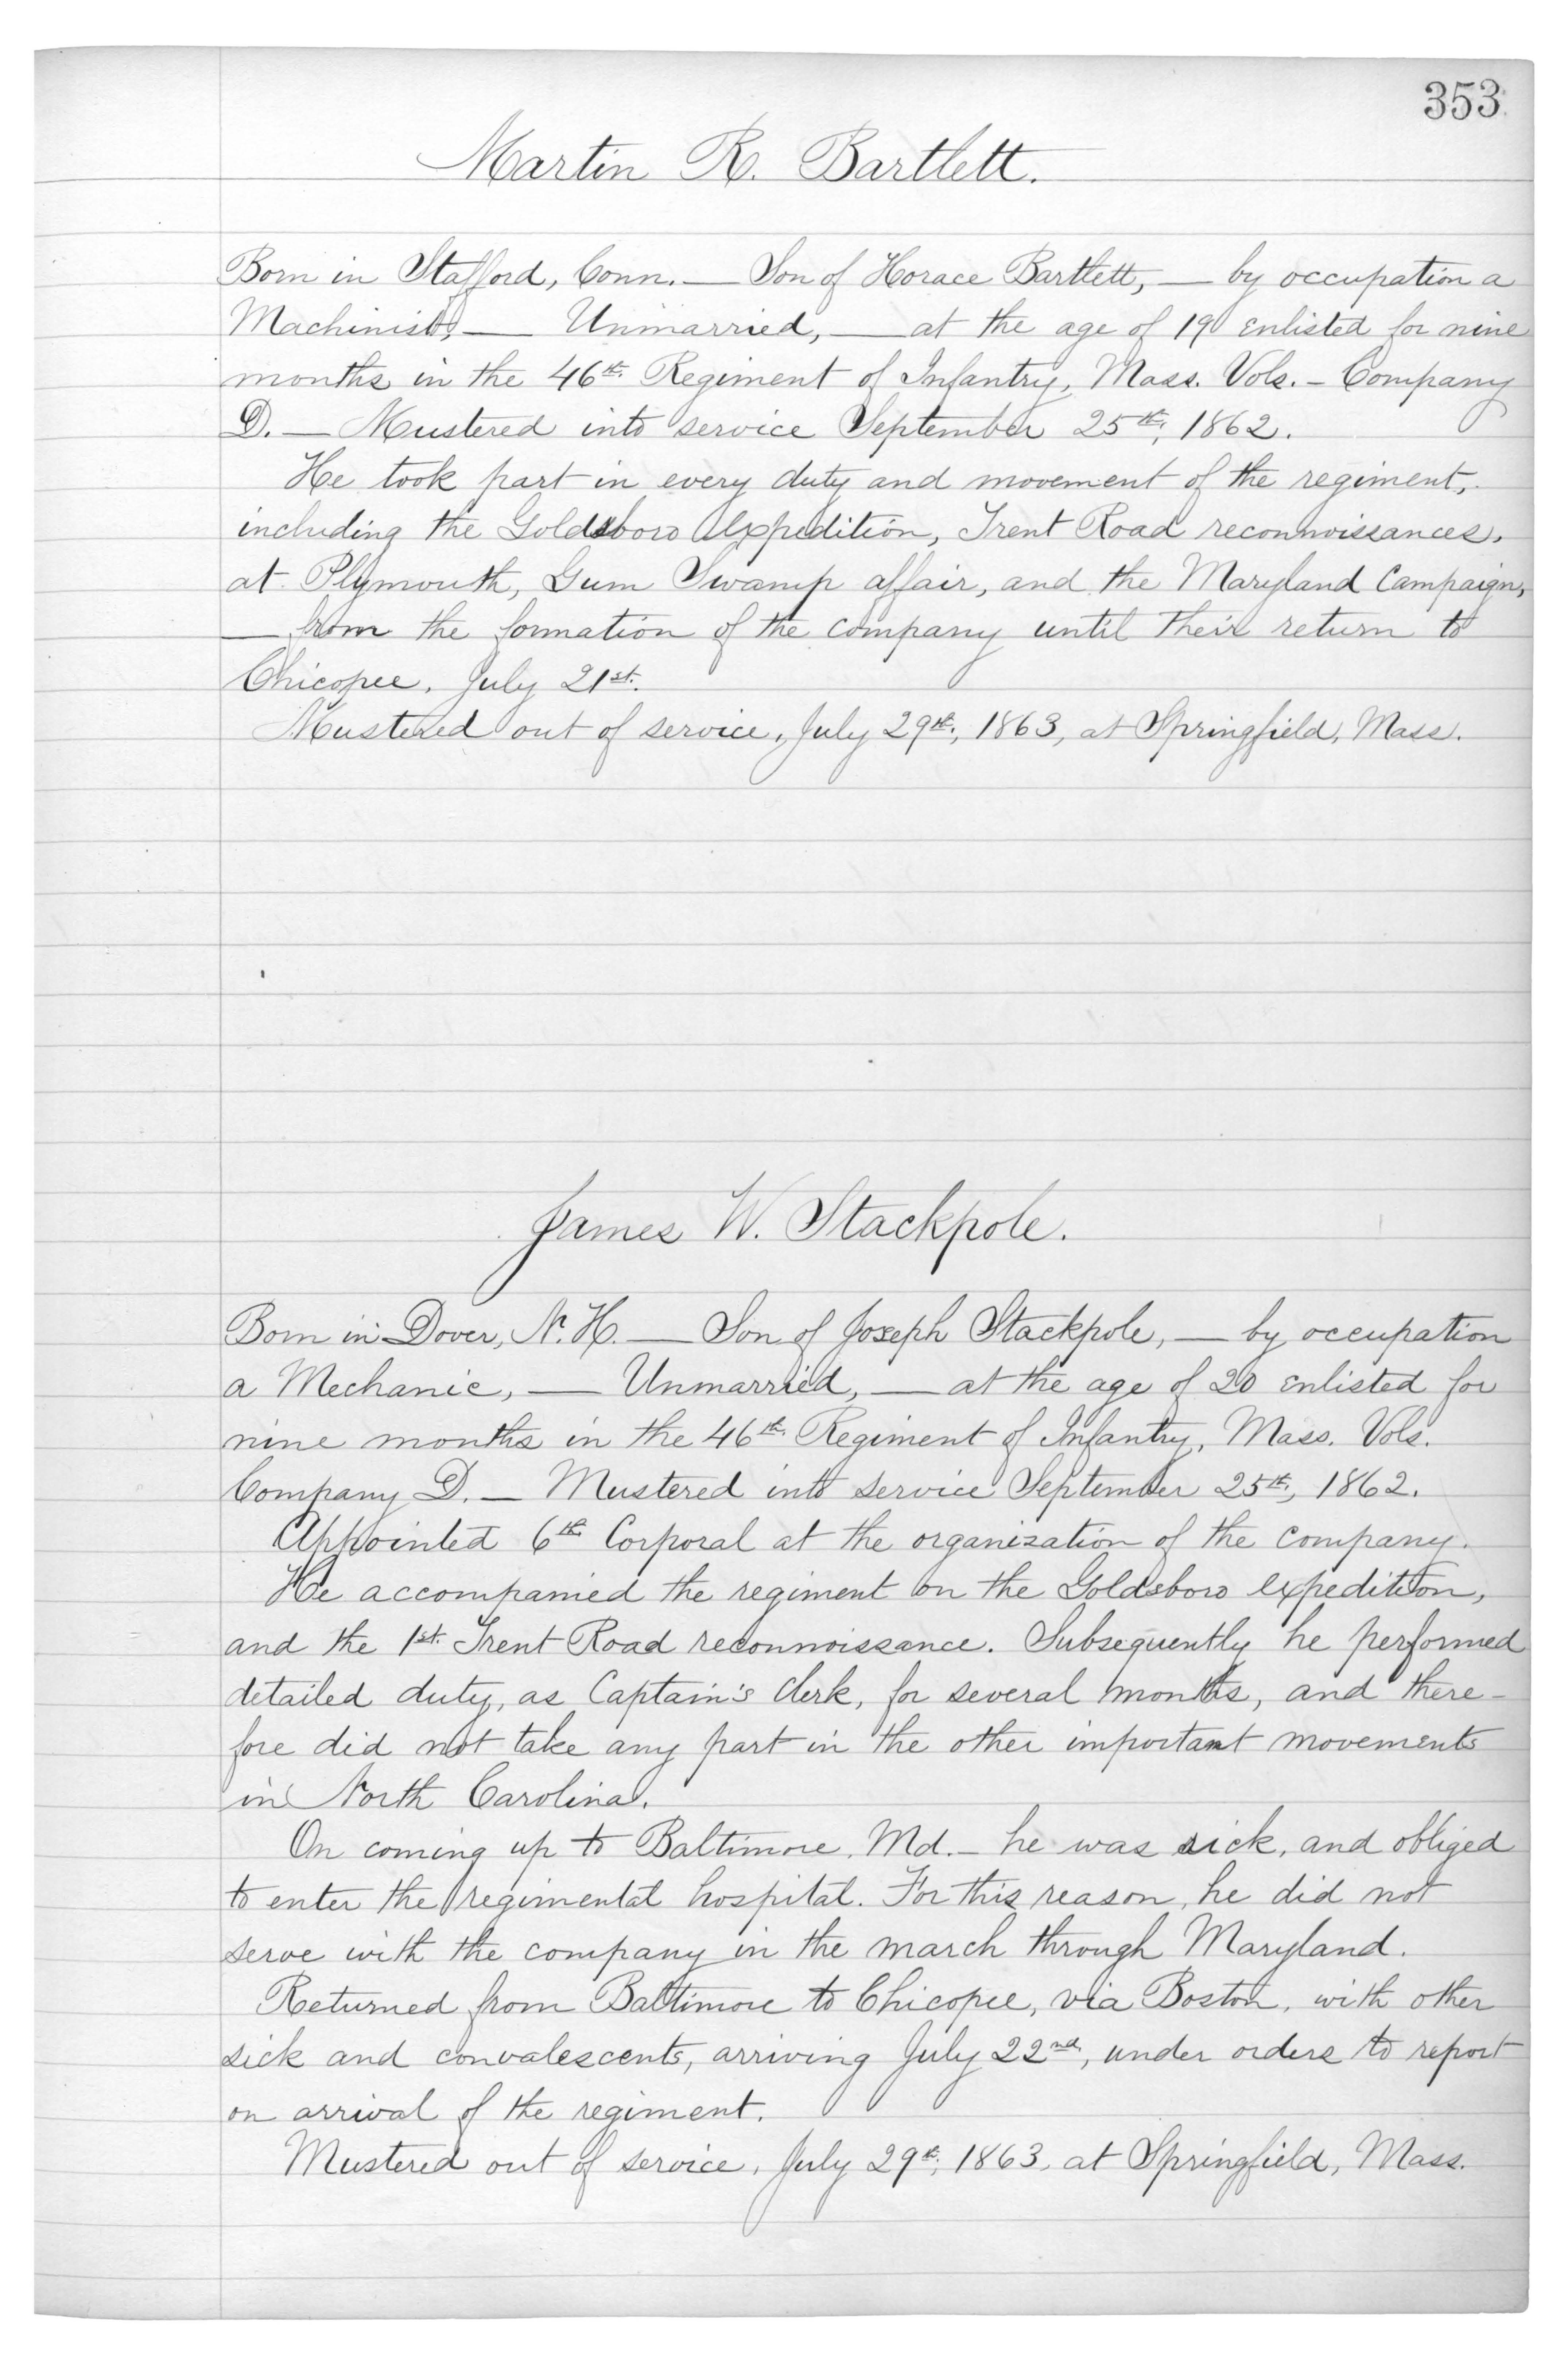 353
Martin R. Bartlett.
Born in Stafford, Conn. — Son of Horace Bartlett, — by occupation a
Machinist, — Unmarried, — at the age of 19 enlisted for nine
months in the 46th Regiment of Infantry, Mass. Vols. - Company
D. — Mustered into service September 25th, 1862.
He took part in every duty and movement of the regiment,
including the Goldsboro Expedition, Trent Road reconnoissances,
at Plymouth, Gum Swamp affair, and the Maryland Campaign,
— from the formation of the company until their return to
Chicopee, July 21st.
Mustered out of service, July 29th, 1863, at Springfield, Mass.
James W. Stackpole.
Born in Dover, N. H. — Son of Joseph Stackpole, — by occupation
a Mechanic, — Unmarried, — at the age of 20 enlisted for
nine months in the 46th Regiment of Infantry, Mass. Vols.
Company D. — Mustered into service September 25th, 1862.
Appointed 6th Corporal at the organization of the company.
He accompanied the regiment on the Goldsboro expedition,
and the 1st Trent Road reconnoissance. Subsequently he performed
detailed duty, as Captain's Clerk, for several months, and there-
fore did not take any part in the other important movements
in North Carolina.
On coming up to Baltimore, Md. - he was sick, and obliged
to enter the regimental hospital. For this reason, he did not
serve with the company in the march through Maryland.
Returned from Baltimore to Chicopee, via Boston, with other
sick and convalescents, arriving July 22nd, under orders to report
on arrival of the regiment.
Mustered out of service, July 29th, 1863, at Springfield, Mass.